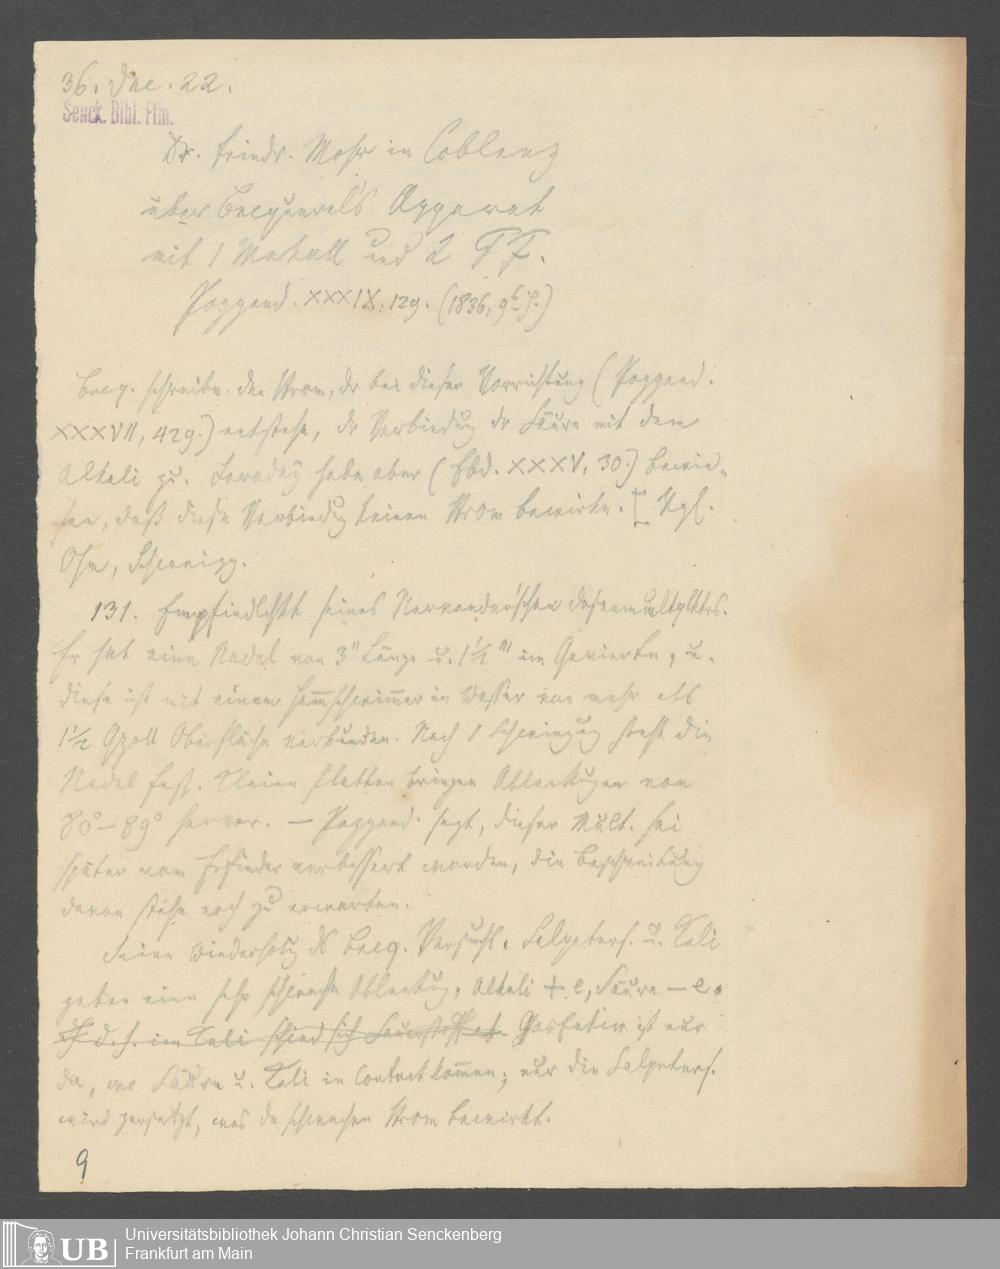 36. Dec. 22.
Senck. Bibl. Ffm.
Dr. Friedr. Mohr in Coblenz
über Becquerel's Apparat
mit 1 Metall und 2 FF.
Poggend. XXXIX. 129. (1836, 9
Becq. schreibe den Strom, der bei dieser Vorrichtung (Poggend.
XXXVII, 429.) entstehe, der Verbindung der Säure mit dem
Alkali zu. Faraday habe aber (Ebd. XXXV, 30.) bewie-
sen, daß diese Verbindung keinen Strom bewirke. [Vgl.
Ohm, Schweigg.
131. Empfindlchkt seines Nervander'schen
Er hat eine Nadel von 3" Länge u. 1½''' im Gevierte, u.
diese ist mit einem in Wasser von mehr als
1½ Qzoll Oberfläche verbunden. Nach 1 Schwingung steht die
Nadel fest. Kleine Platten bringen Ablenkungen von
80°–89° hervor. — Poggend. sagt, dieser Mult. sei
später vom Erfinder verbessert worden, die Beschreibung
davon stehe noch zu erwarten.
Seine Wiederholg ds Becq. Versuchs. Salpeters. u. Kali
gaben eine sehr schwache Ablenkung, Alkali + e, Säure – e.
d. h. im Kali schied sich Sauerstoff Gasentw. ist nur
da, wo Säure u. Kali in Contact kommen; nur die Salpeters.
wird zersetzt, was den schwachen Strom bewirkt.
9
UB
Universitätsbibliothek Johann Christian Senckenberg
Frankfurt am Main